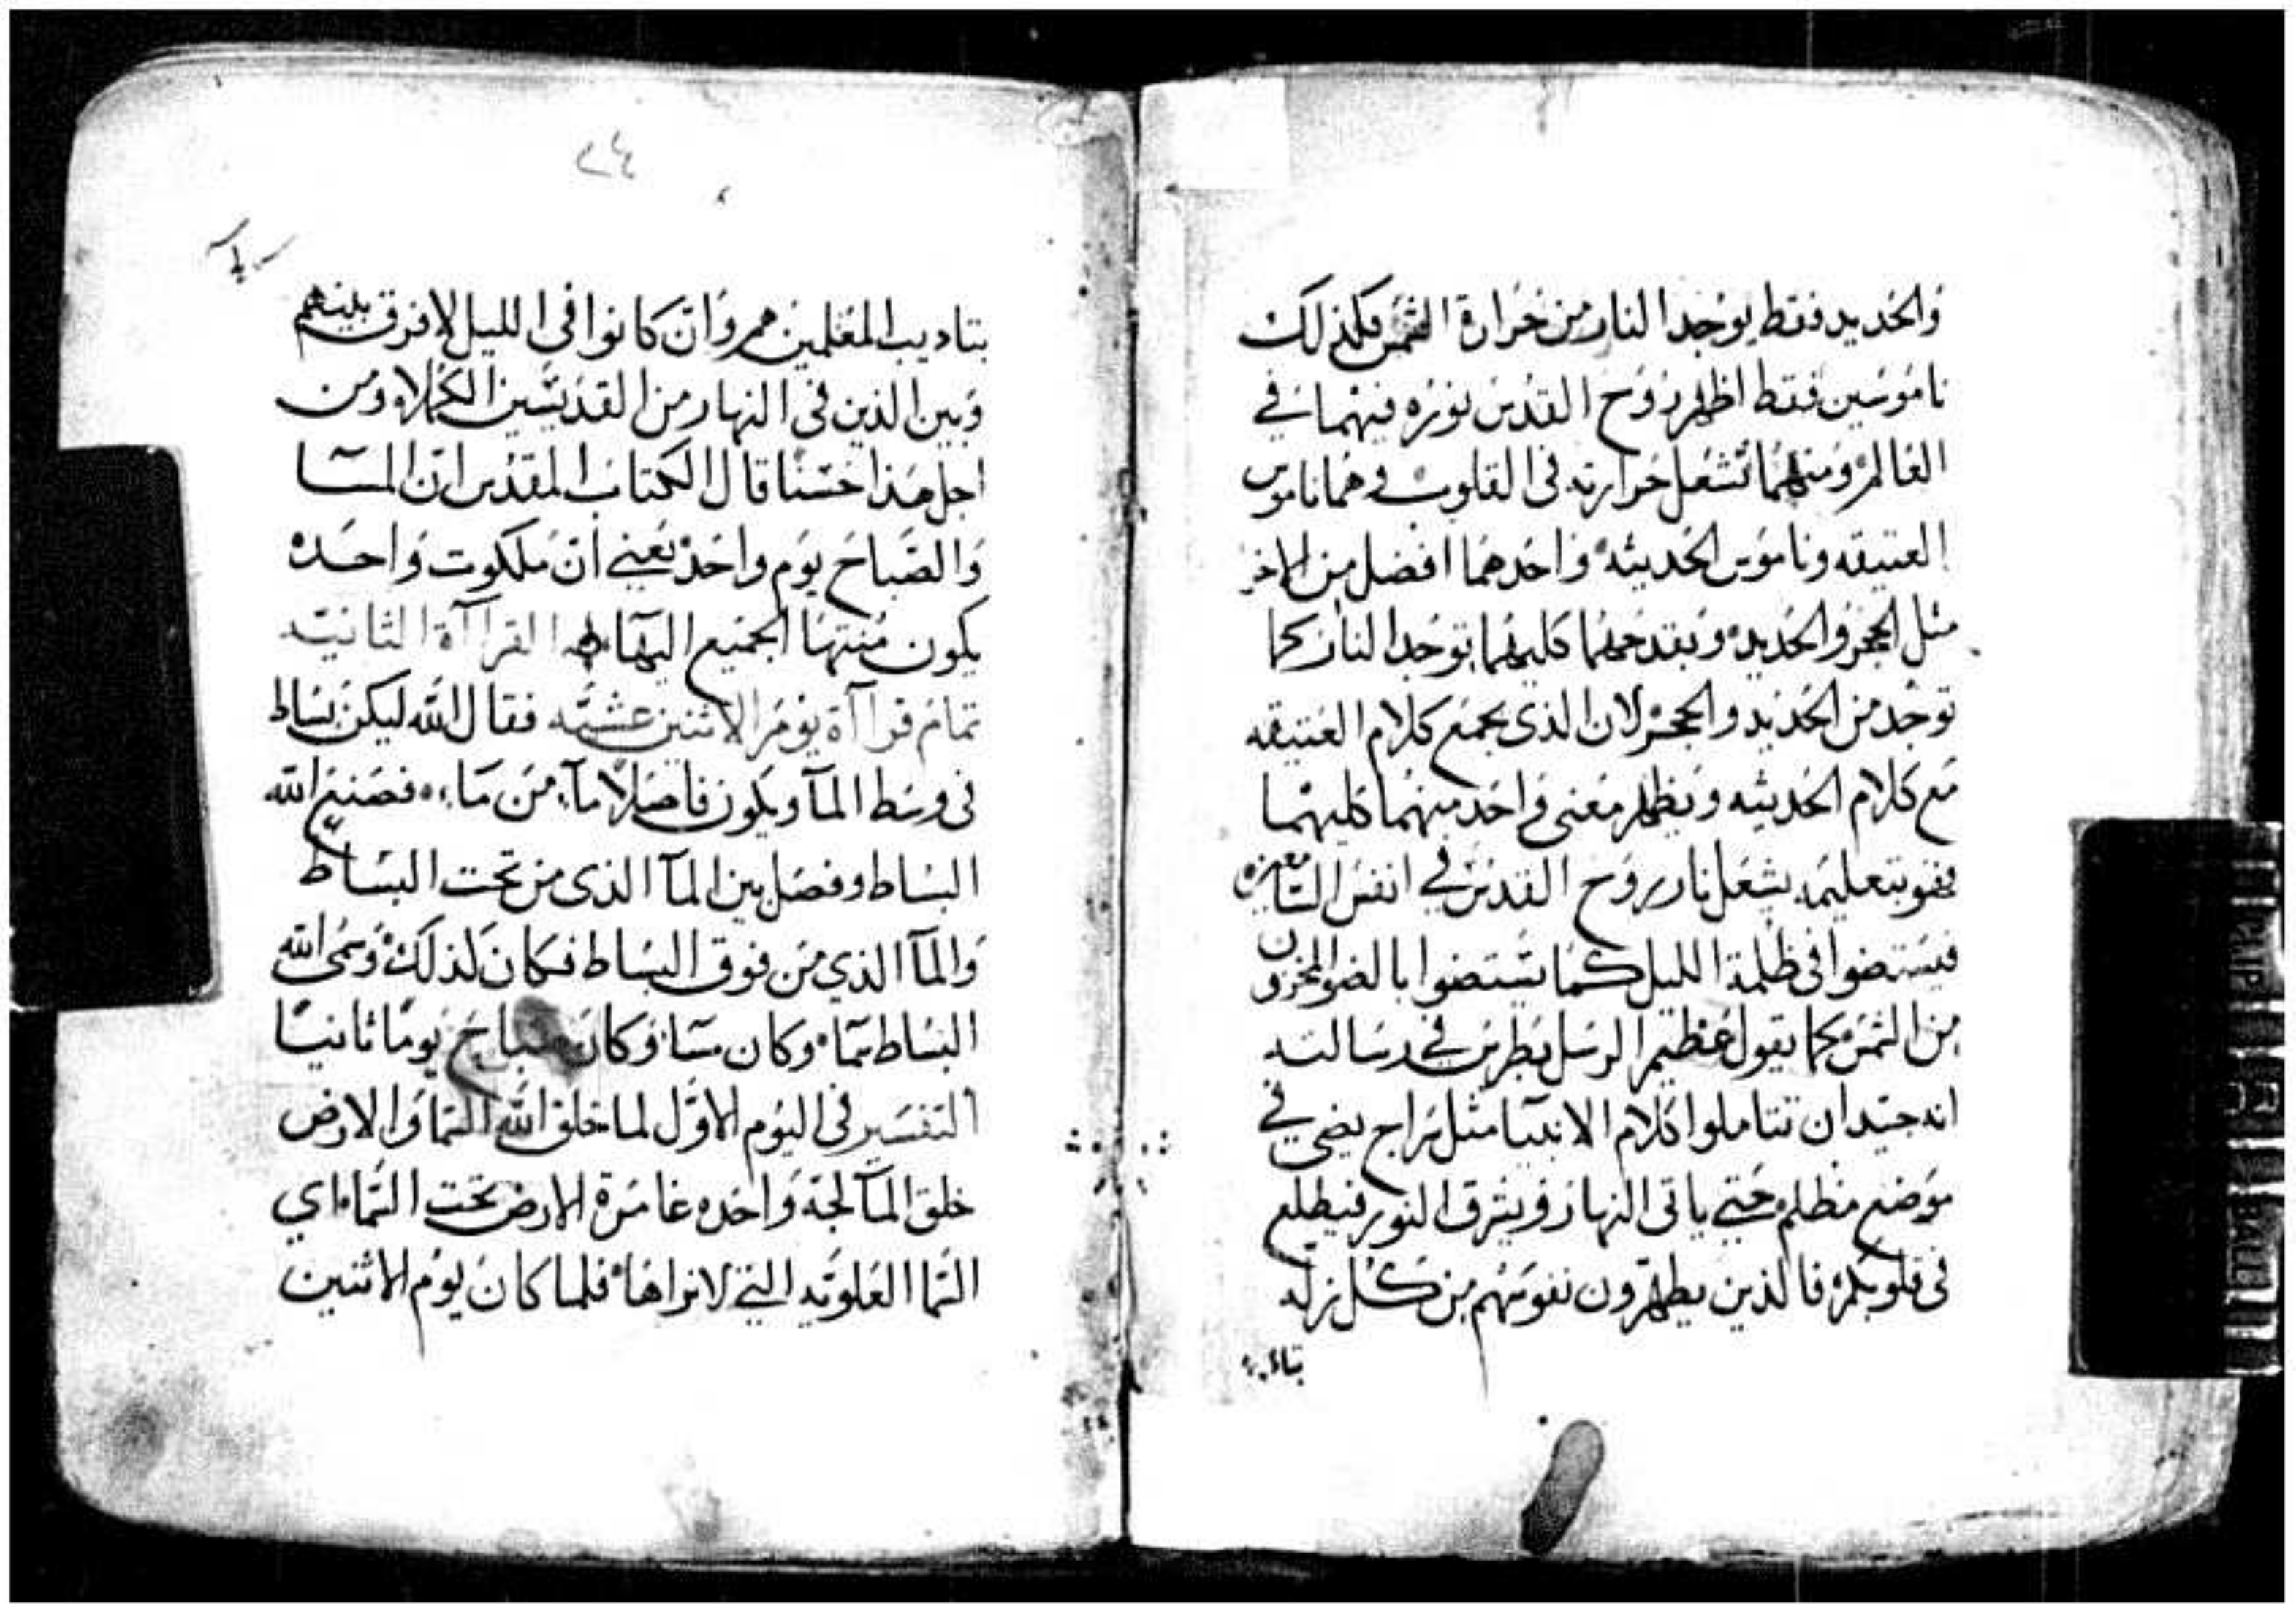 والحديد فقط يوجد النار من حرارة الشمس فكذلك
ناموسين فقط اظهر روح القدس نوره فيهما في
العالم ومنهما تشعل حرارته في القلوب وهما ناموس
العتيقه وناموس الحديثه واحدهما افضل من الاخر
مثل الحجر والحديد وبقدحهما كليهما توجد النار كما
توجد من الحديد والحجر لان الذي يجمع كلام العتيقه
مع كلام الحديثه ويظهر معني واحد منهما كليهما
فهو بتعليمه يشعل نار روح القدس في انفس السامعين
فيستضوا في ظلمة الليل كما يستضوا بالضو المخزون
من الشمس كما يقول عظيم الرسل بطرس في رسالته
انه جيد ان تتاملوا كلام الانبيا مثل سراج يضي في
موضع مظلم حتي ياتي النهار ويشرق النور فيطلع
في قلوبكم فالذين يطهرون نفوسهم من كل زله
بتاد
٢٤
بتاديب المعلمين هم وان كانوا في الليل لا فرق بينهم
وبين الذين في النهار من القديسين الكملاء ومن
اجل هذا حسنا قال الكتاب المقدس ان المسا
والصباح يوم واحد يعني ان ملكوت واحده
يكون منتها الجميع اليها القراآة الثانيه
تمام قراآة يوم الاثنين عشيه فقال الله ليكن بساط
في وسط المآ ويكون فاصلا مآء من مآء فصنع الله
البساط وفصل بين المآ الذي من تحت البساط
والمآ الذي من فوق البساط فكان كذلك وسمى الله
البساط سما وكان مسا وكان صباح يوما ثانيا
التفسير في اليوم الاول لما خلق الله السما والارض
خلق المآ لجة واحده غامرة الارض تحت السماء اي
السما العلويه التي لا نراها فلما كان يوم الاثنين